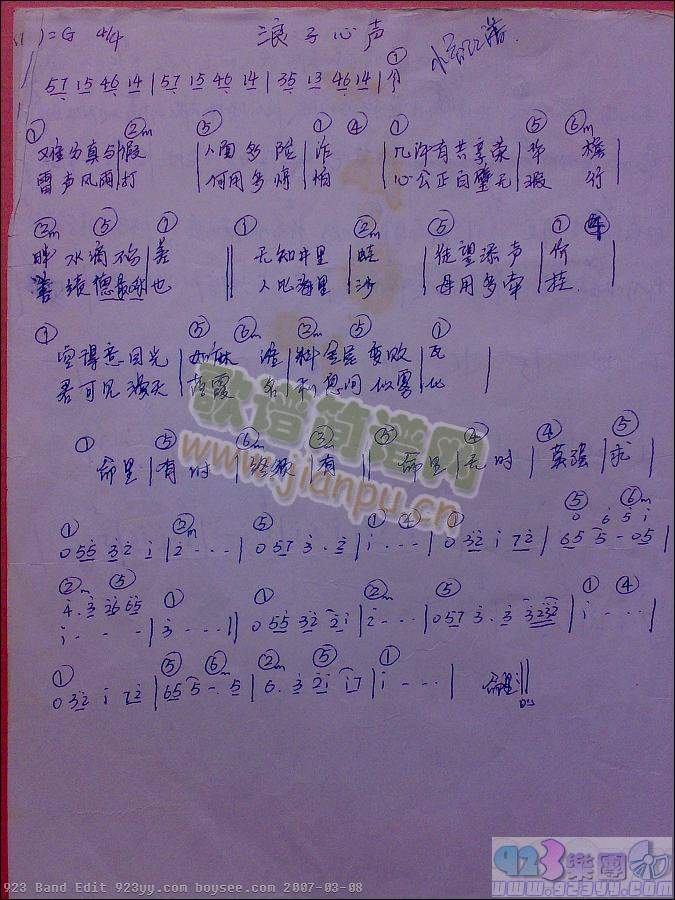 1=G 4/4 浪子心声
57 15 46 14 | 57 15 46 14 | 35 13 46 14 | ①
① ②m ⑤ ① ④ ① ⑤ ⑥m
难分真与假 人面多险诈 几许有共享荣华 檐
雷声风雨打 何用多惊怕 心公正白璧无瑕 行
②m ⑤ ① ① ②m ⑤ ①
畔水滴不 差 无知井里 蛙 徒望添声 价
善 绩德最乐 也 人比海里 沙 毋用多牵 挂
① ⑤ ⑥m ②m ⑤ ①
空得意目光 如麻 谁 料金屋变败 瓦
君可见漫天 落霞 名 利息间似雾 化
① ⑤ ⑥m ③m ③ ④ ④ ⑤
命里 有时 终须 有 命里 无时 莫强 求
① ②m ⑤ ① ④ ① ⑤ ⑥m
0 55 32 1 | 2 · · · | 0 57 3 . 2 | 1 - · · | 0 32 1 72 | 65 5 - 05 |
②m ⑤ ① ① ②m ⑤ ① ④
4 . 3 | 3 · · · || 0 55 32 21 | 2 - · · | 0 57 3 . 3 3232 | 1 - · · |
① ⑤ ⑥m ②m ⑤ ①
0 32 1 72 | 65 5 - . 5 | 6 . 3 21 17 | 1 - · · | 命里 ||
歌谱简谱网
www.jianpu.cn
923 樂團
www.923yy.com
923 Band Edit 923yy.com boysee.com 2007-03-08